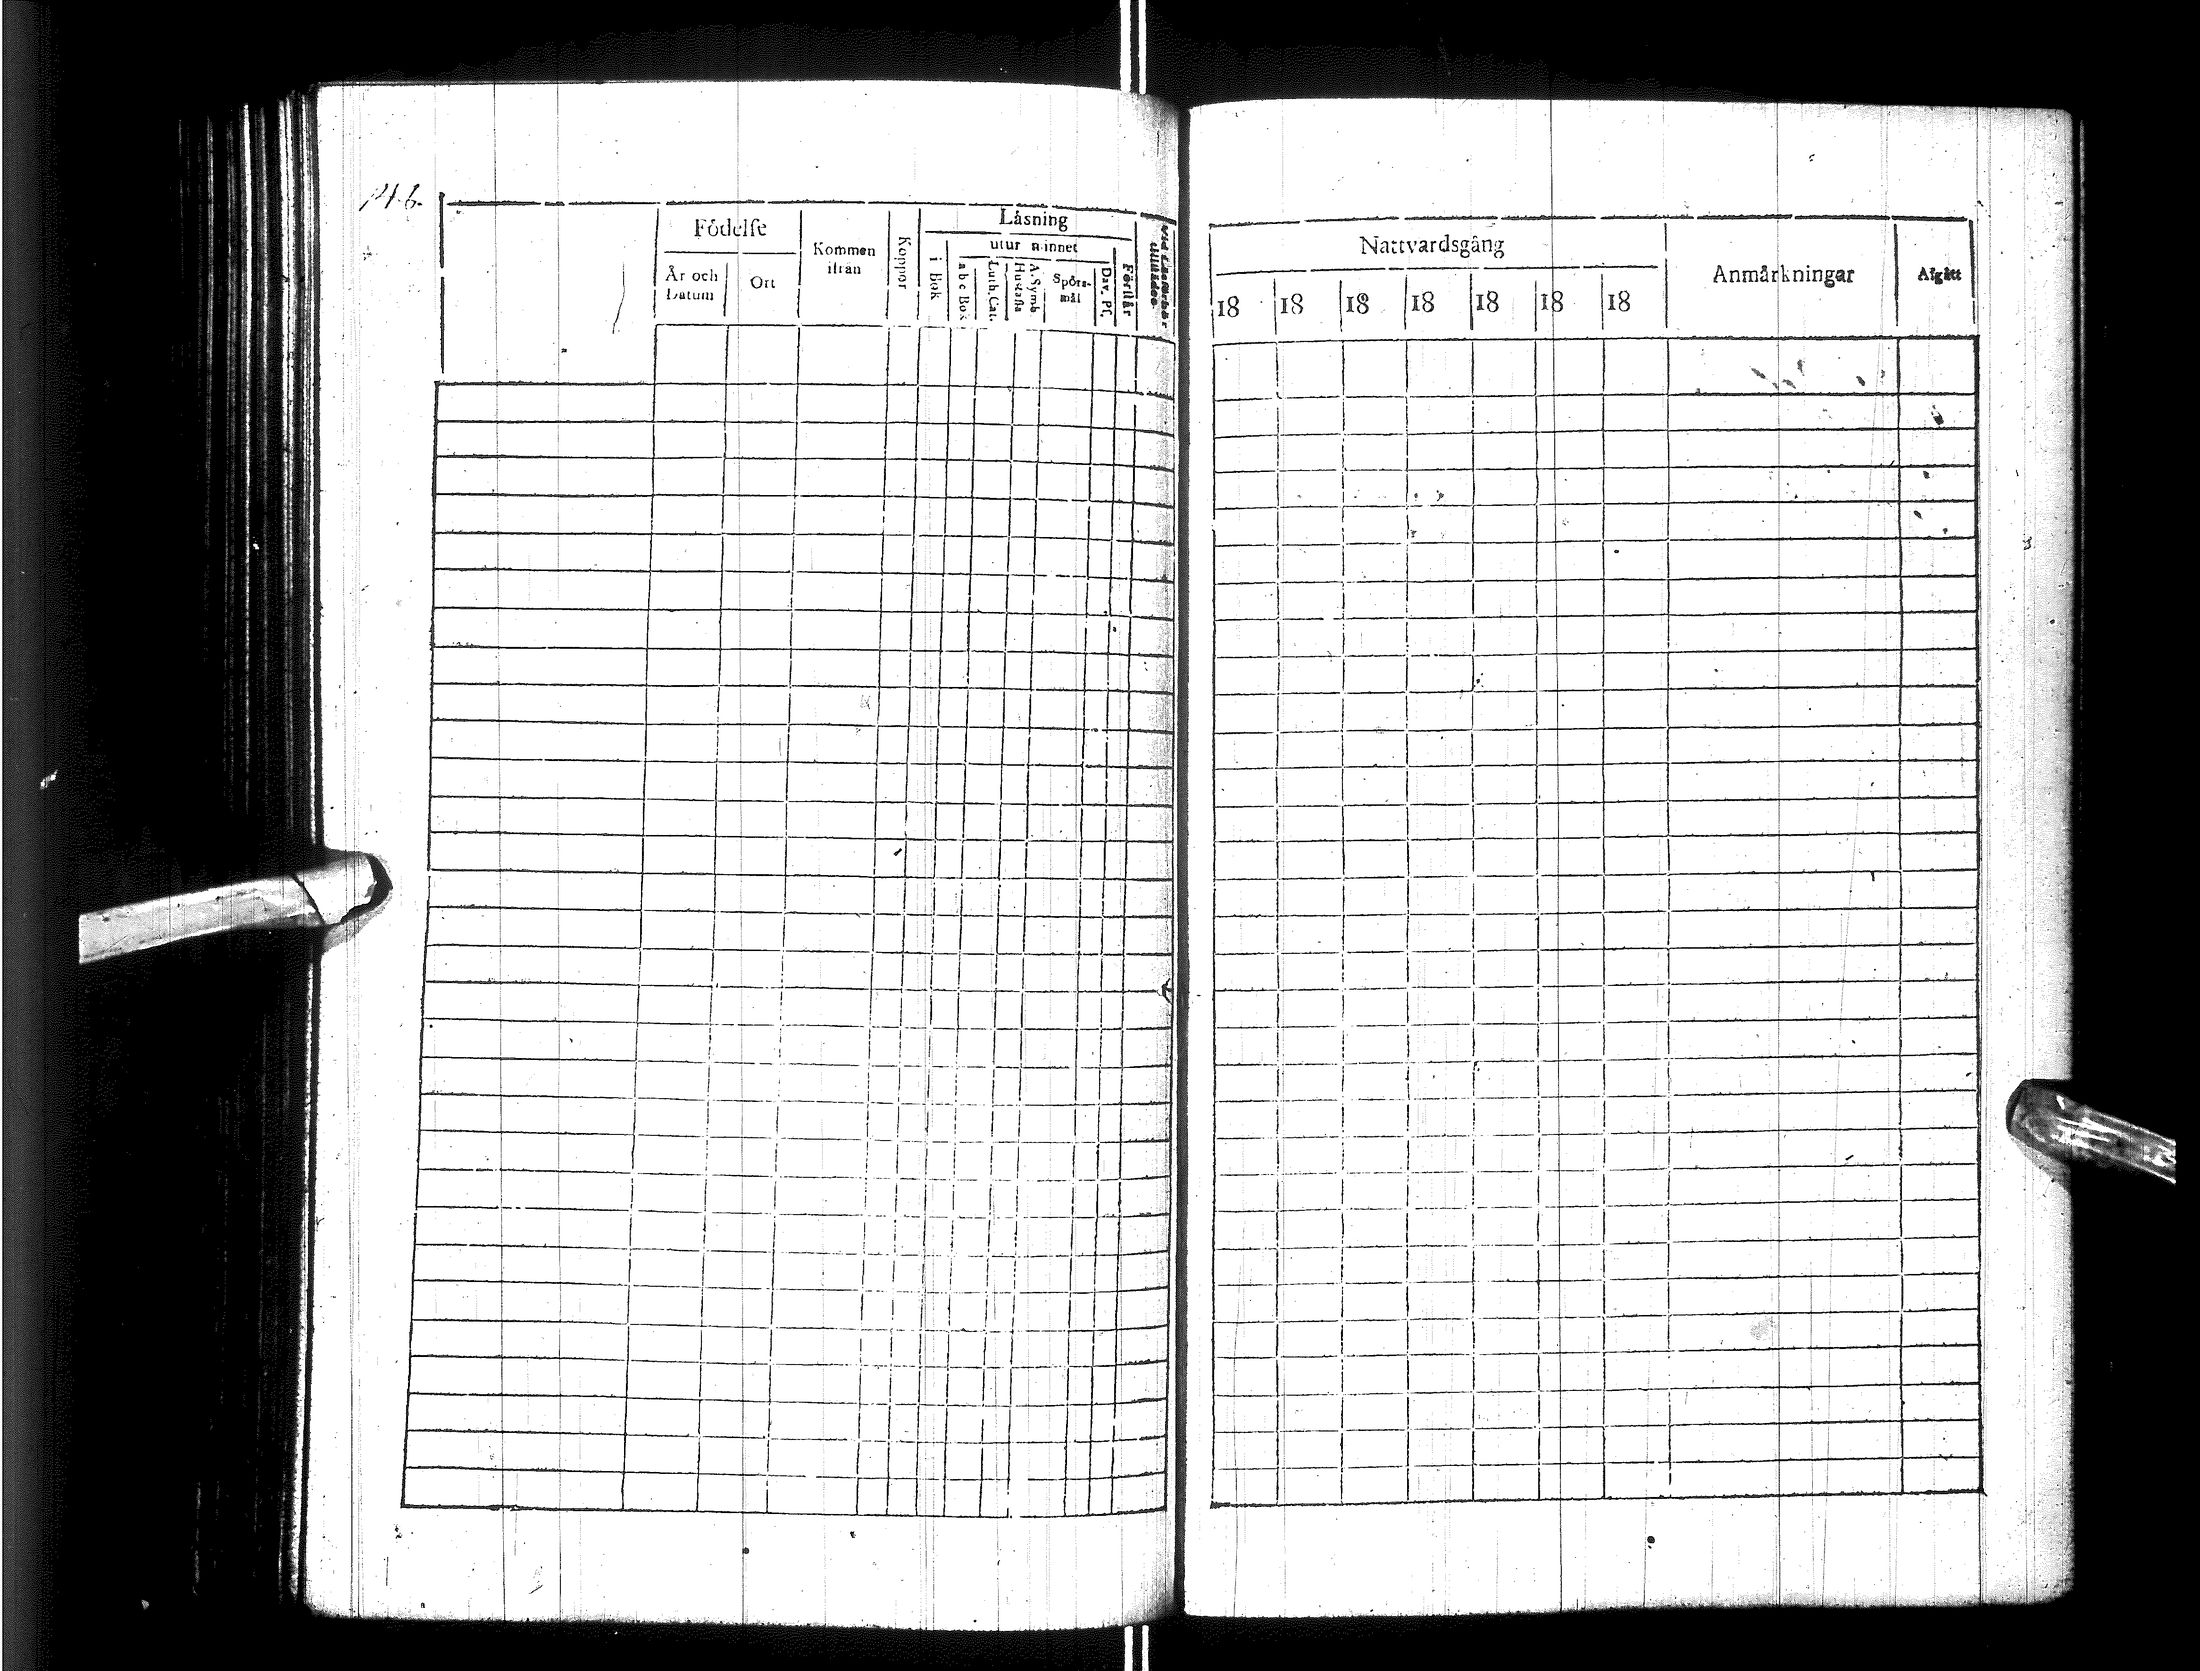 146.
Födelse
År och Datum
Ort
Kommen ifrån
Koppor
Låsning
i Bok
utur minnet
a b c Bok
Luth. Cat.
A. Symb. Hustafla
Spörs-mål
Dav. Ps.
Förstår
Nattvardsgång
18 18 18 18 18 18 18
Anmårkningar
Afgått